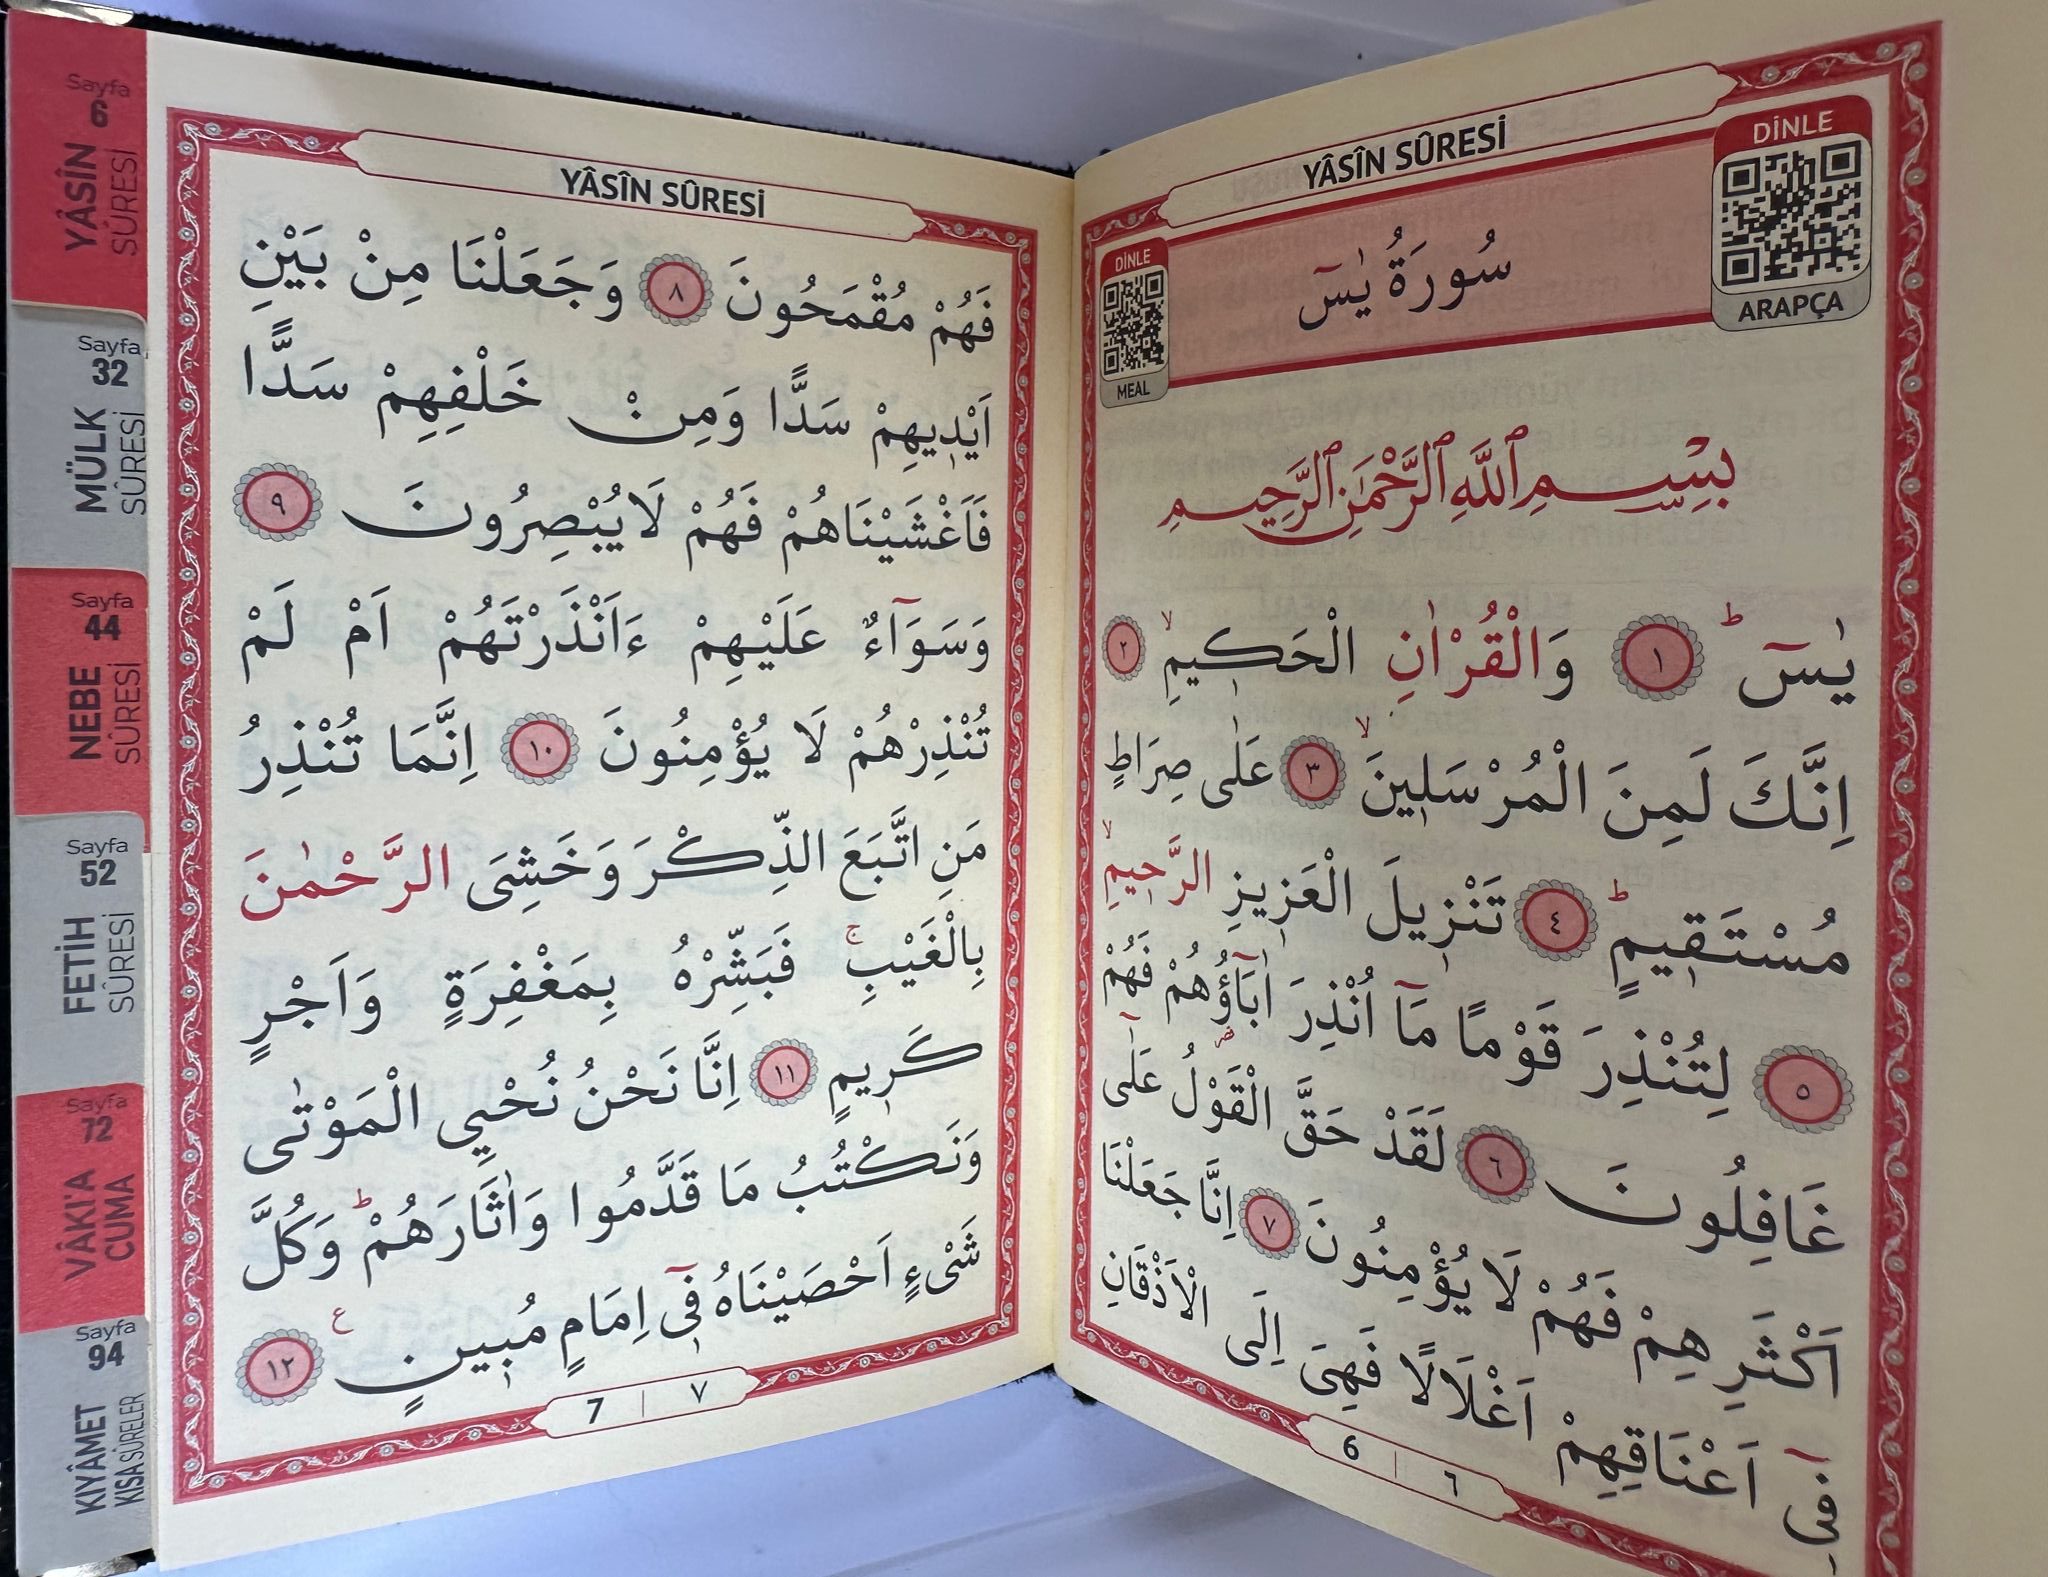 YÂSÎN SÛRESİ
DİNLE
ARAPÇA
سُورَةُ يٰسٓ
DİNLE
MEAL
بِسْمِ اللّٰهِ الرَّحْمٰنِ الرَّحِيمِ
يٰسٓ ۚ ﴿١﴾ وَالْقُرْاٰنِ الْحَكٖيمِۙ ﴿٢﴾
اِنَّكَ لَمِنَ الْمُرْسَلٖينَۙ ﴿٣﴾ عَلٰى صِرَاطٍ
مُسْتَقٖيمٍۜ ﴿٤﴾ تَنْزٖيلَ الْعَزٖيزِ الرَّحٖيمِۙ
﴿٥﴾ لِتُنْذِرَ قَوْمًا مَٓا اُنْذِرَ اٰبَٓاؤُ۬هُمْ فَهُمْ
غَافِلُونَ ﴿٦﴾ لَقَدْ حَقَّ الْقَوْلُ عَلٰٓى
اَكْثَرِهِمْ فَهُمْ لَا يُؤْمِنُونَ ﴿٧﴾ اِنَّا جَعَلْنَا
فٖٓى اَعْنَاقِهِمْ اَغْلَالًا فَهِىَ اِلَى الْاَذْقَانِ
6 | ٦
YÂSÎN SÛRESİ
فَهُمْ مُقْمَحُونَ ﴿٨﴾ وَجَعَلْنَا مِنْ بَيْنِ
اَيْدٖيهِمْ سَدًّا وَمِنْ خَلْفِهِمْ سَدًّا
فَاَغْشَيْنَاهُمْ فَهُمْ لَا يُبْصِرُونَ ﴿٩﴾
وَسَوَٓاءٌ عَلَيْهِمْ ءَاَنْذَرْتَهُمْ اَمْ لَمْ
تُنْذِرْهُمْ لَا يُؤْمِنُونَ ﴿١٠﴾ اِنَّمَا تُنْذِرُ
مَنِ اتَّبَعَ الذِّكْرَ وَخَشِىَ الرَّحْمٰنَ
بِالْغَيْبِۚ فَبَشِّرْهُ بِمَغْفِرَةٍ وَاَجْرٍ
كَرٖيمٍ ﴿١١﴾ اِنَّا نَحْنُ نُحْيِي الْمَوْتٰى
وَنَكْتُبُ مَا قَدَّمُوا وَاٰثَارَهُمْۜ وَكُلَّ
شَىْءٍ اَحْصَيْنَاهُ فٖٓى اِمَامٍ مُبٖينٍ ع ﴿١٢﴾
7 | ٧
Sayfa
6
YÂSÎN
SÛRESİ
Sayfa
32
MÜLK
SÛRESİ
Sayfa
44
NEBE
SÛRESİ
Sayfa
52
FETİH
SÛRESİ
Sayfa
72
VÂKI'A
CUMA
Sayfa
94
KIYÂMET
KISA SÛRELER